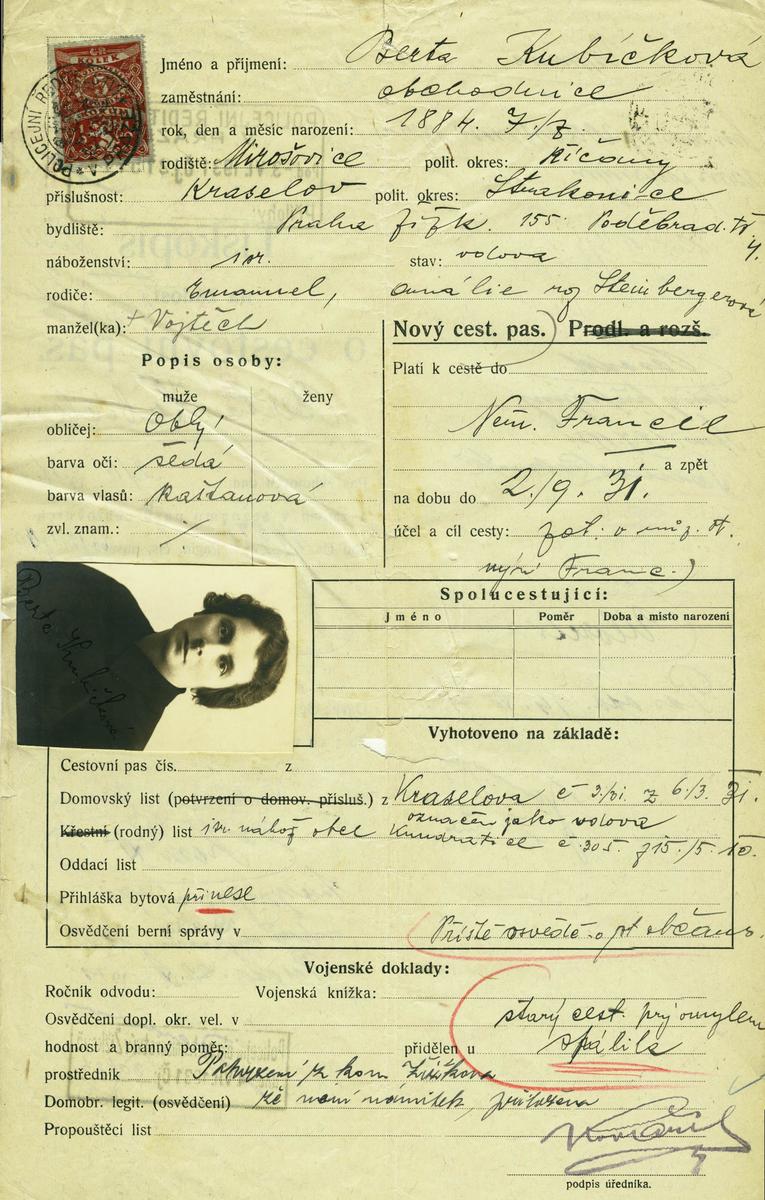 Jméno a příjmení: Berta Kubíčková
zaměstnání: obchodnice
rok, den a měsíc narození: 1884. 7/8
rodiště: Mirošovice polit. okres: Říčany
příslušnost: Kraselov polit. okres: Strakonice
bydliště: Praha Žižk. 155 Poděbrad. tř. 4.
náboženství: isr. stav: vdova
rodiče: Emanuel, Amálie roz Steinbergerová
manžel(ka): + Vojtěch
Nový cest. pas.) Prodl. a rozš.
Popis osoby:
Platí k cestě do
muže ženy
obličej: Oblý
Něm. Francie
barva očí: šedá
a zpět
barva vlasů: kaštanová
na dobu do 2./9. 31.
zvl. znam.: /
účel a cíl cesty:
nyní Franc.)
Berta Kubíčková
Spolucestující:
Jméno Poměr Doba a místo narození
Vyhotoveno na základě:
Cestovní pas čís. z
Domovský list (potvrzení o domov. přísluš.) z Kraselova č 3/VI. z 6./3. 31.
označen jako vdova
Křestní (rodný) list isr. nábož obce Kundratice č 305 z 15./5. 10.
Oddací list
Přihláška bytová přinese
Osvědčení berní správy v Příště osvědč. o st občans.
Vojenské doklady:
Ročník odvodu: Vojenská knížka:
starý cest. prý omylem
Osvědčení dopl. okr. vel. v
spálila
hodnost a branný poměr: přidělen u
prostředník Potvrzení z kom Žižkova
Domobr. legit. (osvědčení) že není námitek, přiložena
Propouštěcí list
podpis úředníka.